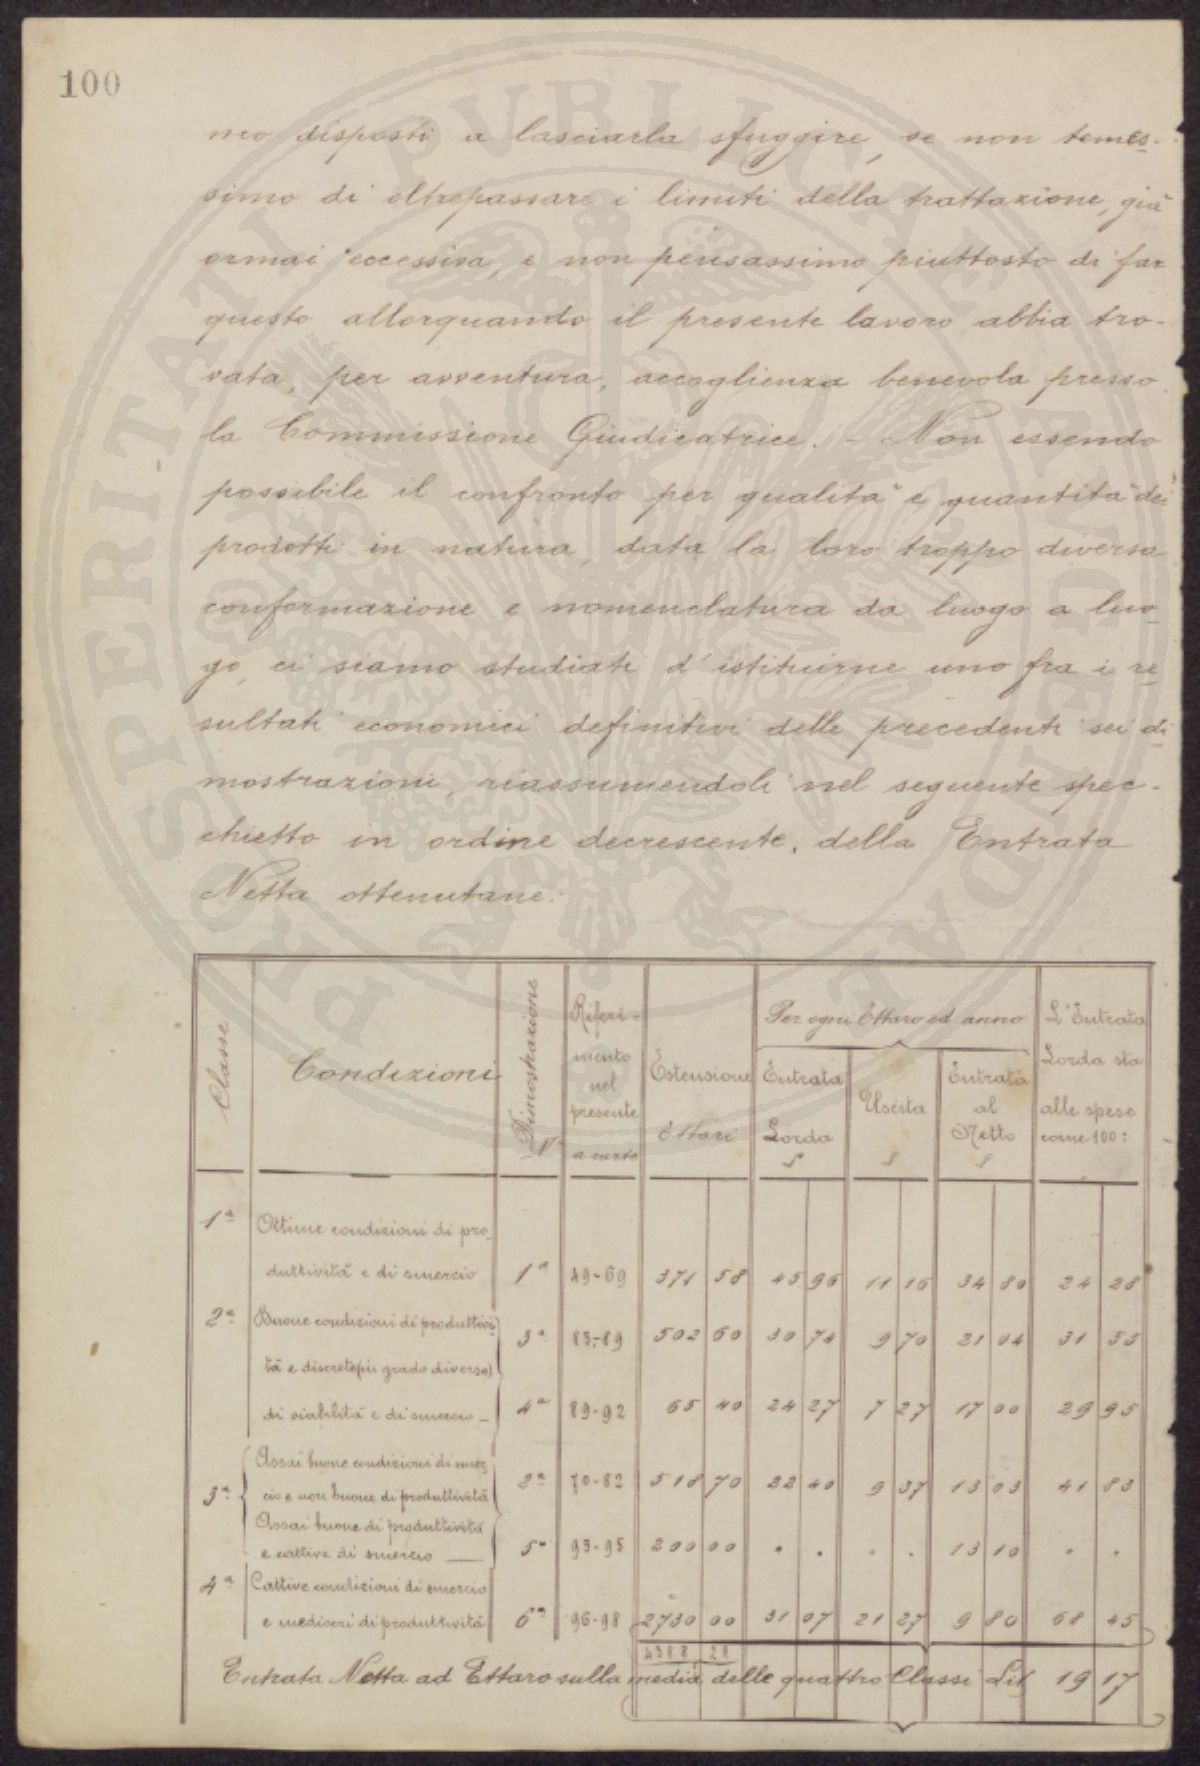 100
mo disposti a lasciarla sfuggire, se non temes-
simo di oltrepassare i limiti della trattazione, già
ormai eccessiva, e non pensassimo piuttosto di far
questo allorquando il presente lavoro abbia tro-
vata, per avventura, accoglienza benevola presso
la Commissione Giudicatrice. - Non essendo
possibile il confronto per qualità e quantità dei
prodotti in natura, data la loro troppo diversa
conformazione e nomenclatura da luogo a luo-
go, ci siamo studiati d'istituirne uno fra i re-
sultati economici definitivi delle precedenti sei di-
mostrazioni, riassumendoli nel seguente spec-
chietto in ordine decrescente, della Entrata
Netta ottenutane:
Classe | Condizioni | Dimostrazione N° | Riferi-mento nel presente a carte | Estensione Ettari | Per ogni Ettaro ed anno | L'Entrata Lorda sta alle spese come 100:
Entrata Lorda £ | Uscita £ | Entrata al Netto £
1ª | Ottime condizioni di pro-
duttività e di smercio | 1ª | 49-69 | 371 58 | 45 96 | 11 16 | 34 80 | 24 28
2ª | Buone condizioni di produttivi- | 3ª | 83-89 | 502 60 | 30 74 | 9 70 | 21 04 | 31 55
tà e discrete (più grado diverso)
di viabilità e di smercio | 4ª | 89-92 | 65 40 | 24 27 | 7 27 | 17 00 | 29 95
3ª | Assai buone condizioni di smer-
cio e non buone di produttività | 2ª | 70-82 | 518 70 | 22 40 | 9 37 | 13 03 | 41 83
Assai buone di produttività
e cattive di smercio | 5ª | 93-95 | 200 00 | . . | . . | 13 10 | . .
4ª | Cattive condizioni di smercio
e mediocri di produttività | 6ª | 96-98 | 2730 00 | 31 07 | 21 27 | 9 80 | 68 45
4388 28
Entrata Netta ad Ettaro sulla media delle quattro Classi Lit 19 17
PROSPERITATI PVBLICAE AVGENDAE